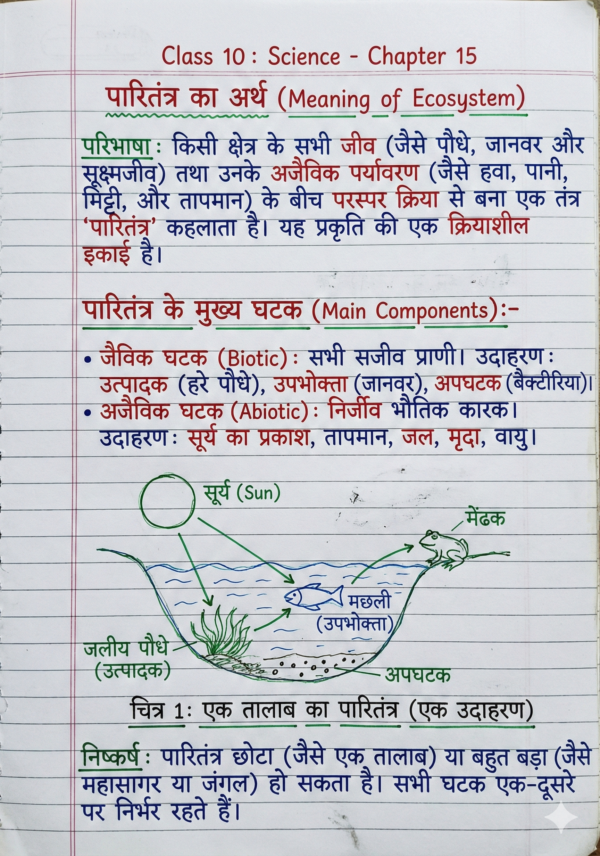 Class 10 : Science - Chapter 15
पारितंत्र का अर्थ (Meaning of Ecosystem)
परिभाषा : किसी क्षेत्र के सभी जीव (जैसे पौधे, जानवर और
सूक्ष्मजीव) तथा उनके अजैविक पर्यावरण (जैसे हवा, पानी,
मिट्टी, और तापमान) के बीच परस्पर क्रिया से बना एक तंत्र
'पारितंत्र' कहलाता है। यह प्रकृति की एक क्रियाशील
इकाई है।
पारितंत्र के मुख्य घटक (Main Components):-
• जैविक घटक (Biotic) : सभी सजीव प्राणी। उदाहरण :
उत्पादक (हरे पौधे), उपभोक्ता (जानवर), अपघटक (बैक्टीरिया)।
• अजैविक घटक (Abiotic) : निर्जीव भौतिक कारक।
उदाहरण : सूर्य का प्रकाश, तापमान, जल, मृदा, वायु।
सूर्य (Sun)
मेंढक
मछली
(उपभोक्ता)
जलीय पौधे
(उत्पादक)
अपघटक
चित्र 1: एक तालाब का पारितंत्र (एक उदाहरण)
निष्कर्ष : पारितंत्र छोटा (जैसे एक तालाब) या बहुत बड़ा (जैसे
महासागर या जंगल) हो सकता है। सभी घटक एक-दूसरे
पर निर्भर रहते हैं।